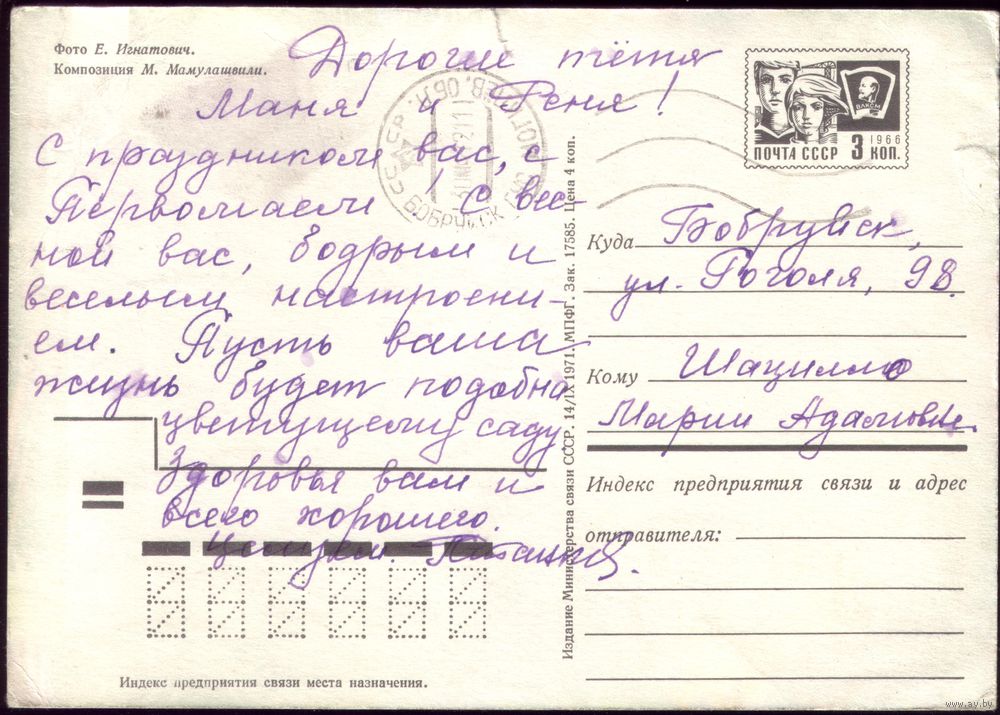 Фото Е. Игнатович.
Композиция М. Мамулашвили.
Дорогие тётя
Маня и Реня!
С праздником вас, с
Первомаем! С вес-
ной вас, бодрым и
веселым настроени-
ем. Пусть ваша
жизнь будет подобна
цветущему саду
Здоровья вам и
всего хорошего.
Целуем.
Индекс предприятия связи места назначения.
СССР
БОБРУЙСК
Издание Министерства связи СССР. 14/IX 1971. МПФГ. Зак. 17585. Цена 4 коп.
ВЛКСМ
1966
ПОЧТА СССР 3 КОП.
Куда Бобруйск,
ул. Гоголя, 98.
Кому Шацилло
Марии Адамовне.
Индекс предприятия связи и адрес
отправителя:
www.ay.by